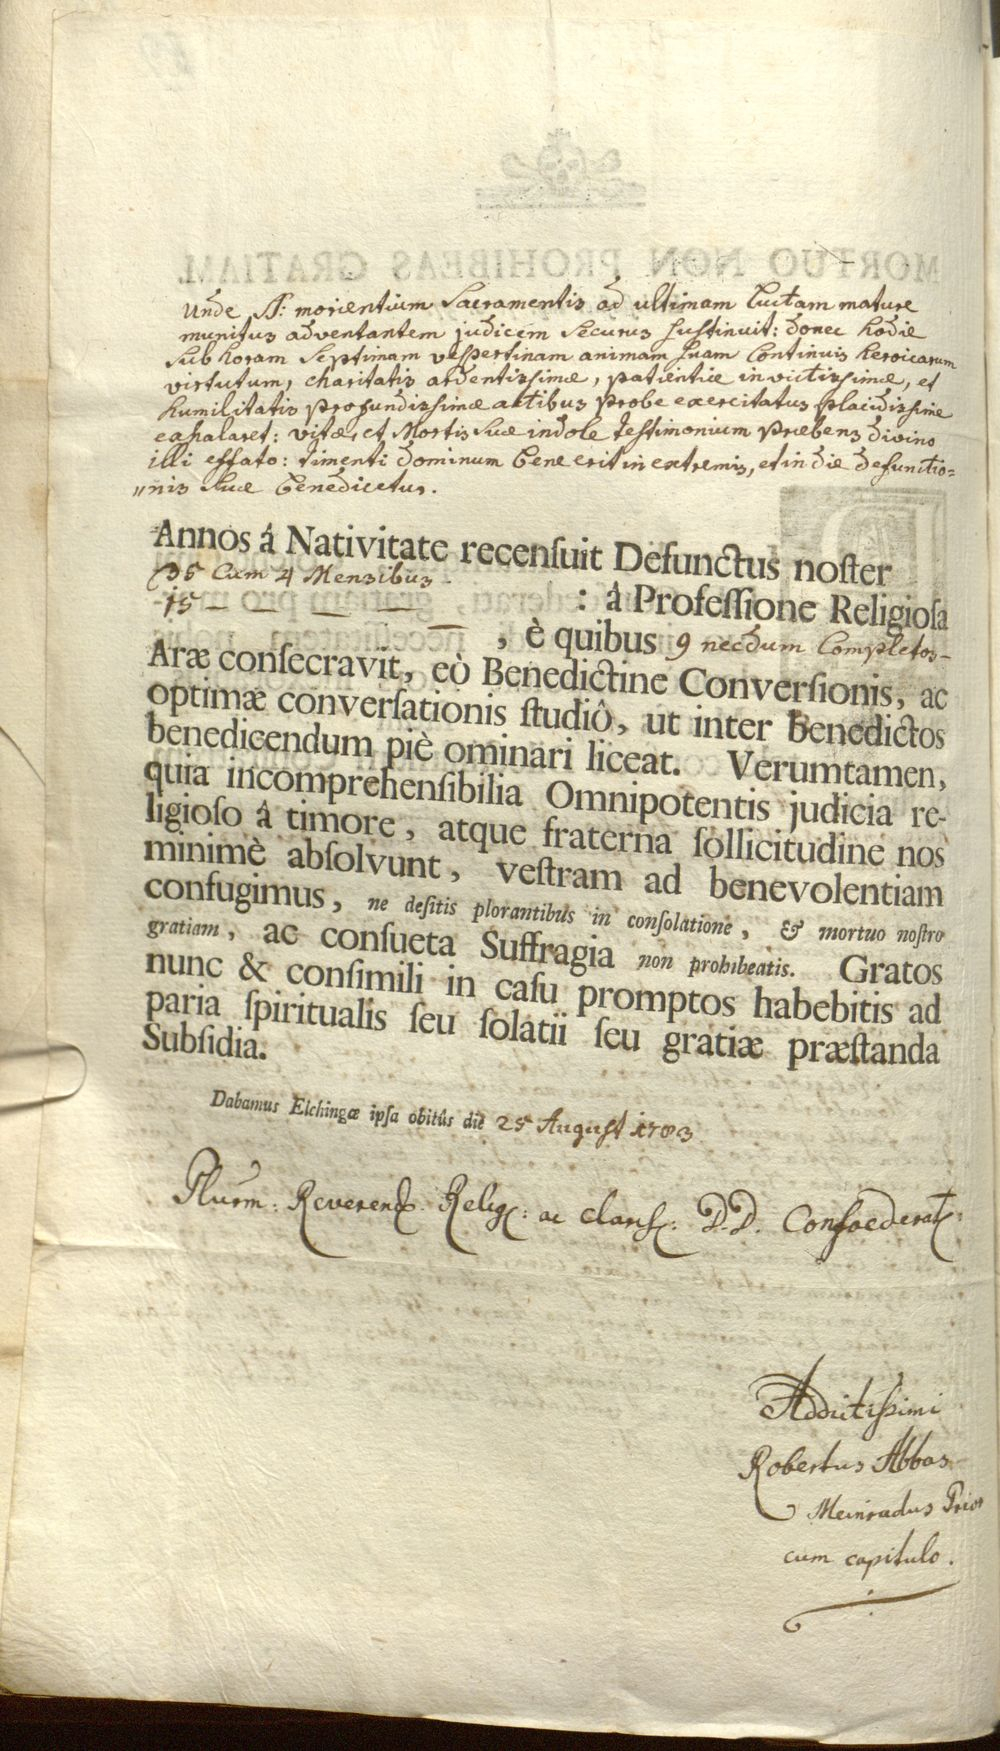 Unde SS: morientium Sacramentis ad ultimam luctam mature
munitus adventantem judicem securus sustinuit: donec hodie
sub horam septimam vespertinam animam suam continuis heroicarum
virtutum, charitatis ardentissimæ, patientiæ invictissimæ, et
humilitatis profundissimæ actibus probe exercitatus placidissime
exhalaret: vitæ, et Mortis suæ indole testimonium præbens divino
illi effato: timenti dominum bene erit in extremis, et in die defunctio=
"nis suæ benedicetur.
Annos á Nativitate recenſuit Defunctus noſter
35 Cum 4 Mensibus : á Profeſſione Religioſa
15 — — — — — , è quibus 9 necdum Completos
Aræ conſecravit, eò Benedictine Converſionis, ac
optimæ converſationis ſtudiô, ut inter Benedictos
benedicendum piè ominari liceat. Verumtamen,
quia incomprehenſibilia Omnipotentis judicia re-
ligioſo â timore, atque fraterna ſollicitudine nos
minimè abſolvunt, veſtram ad benevolentiam
confugimus, ne deſitis plorantibus in conſolatione, & mortuo noſtro
gratiam, ac conſueta Suffragia non prohibeatis. Gratos
nunc & conſimili in caſu promptos habebitis ad
paria ſpiritualis ſeu ſolatii ſeu gratiæ præſtanda
Subſidia.
Dabamus Elchingæ ipſa obitûs diê 25 August 1783
Plurm: Reverend: Relig: ac clariss: D.D. Confoederat:
Addictissimi
Robertus Abbas
Meinradus Prior
cum capitulo.
MORTUO NON PROHIBEAS GRATIAM.